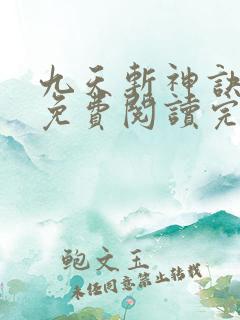 九天斬神訣
免費閱讀完
鲍文玉
未经同意禁止转载